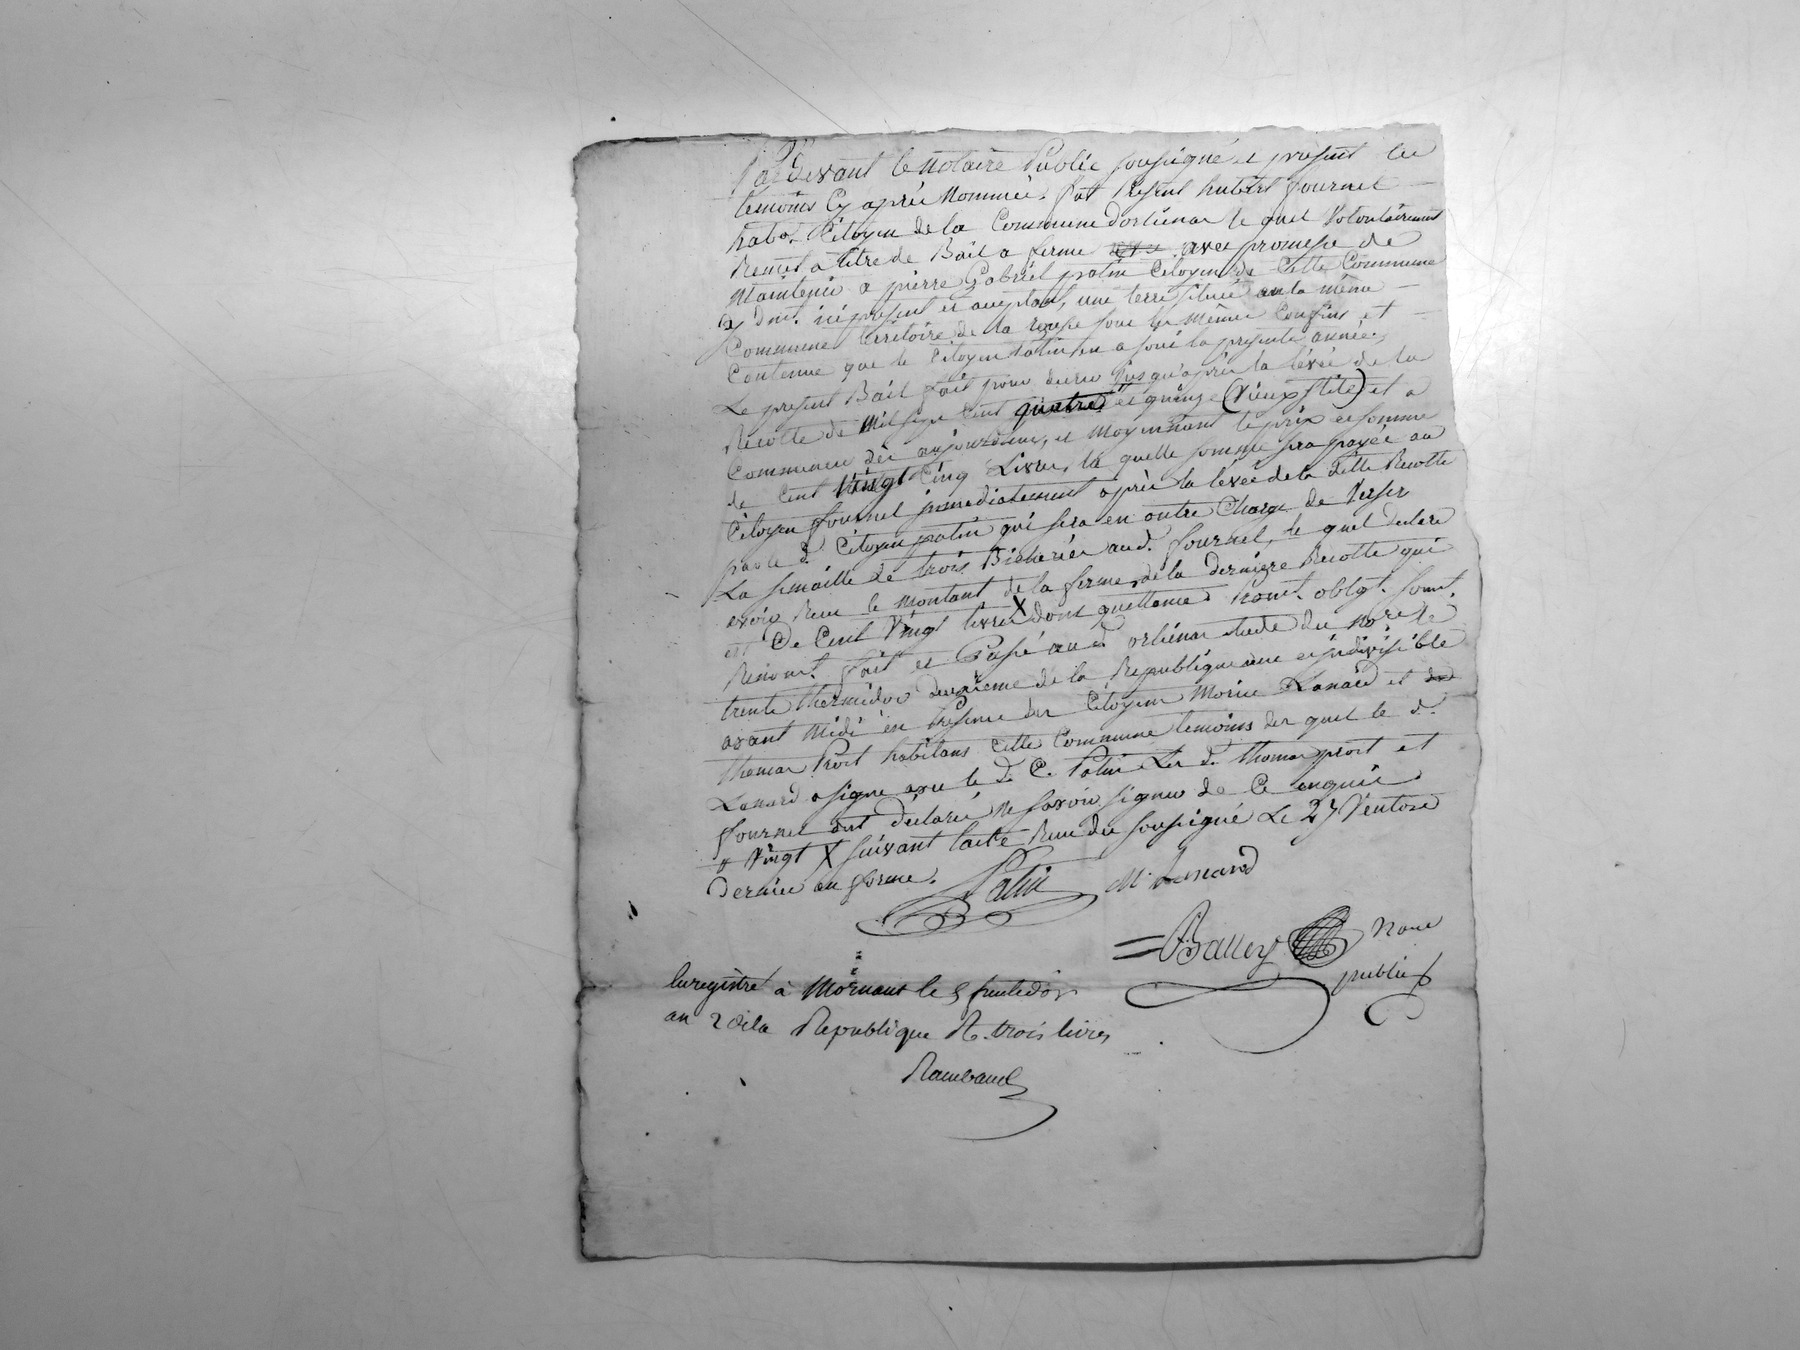 Pardevant le Notaire Public soussigné et present les
temoins Cy après Nommés. fut Present hubert fournel
habt. Citoyen de la Commune dorlienas le quel Volontairement
Remet a titre de Bail a ferme avec promesse de
Maintenir a pierre Gabriël patin Citoyen de Cette Commune
y dmt. ici present et acceptant, une terre située en la même
Commune territoire de la sous les mêmes Confins et
Contenue que le Citoyen patin en a joui la presente année,
Le present Bail fait pour durer jusqu'après la lévée de la
Recolte de Mil sept Cent quatre et quinze (Vieux stile) et a
Commencer dès aujourdhui, et moyennant le prix et somme
de Cent Vingt Cinq Livres, la quelle somme sera payée au
Citoyen fournel immediatement après la lévée de la ditte Recolte
par le d. Citoyen patin qui sera en outre Chargé de Verser
La semaille de trois Bicherées aud. fournel, le quel declare
avoir Reçu le montant de la ferme de la derniere Recolte qui
est De Cent Vingt livres X dont quittance. hont. obligt. soumt.
Renont. fait et Passé aud. orlienas etude du no.re le
trente thermidor deuxieme de la Republique une et indivisible
avant Midi en Presence des Citoyens Morice Lanard et
thomas Prost habitans Cette Commune temoins des quels le d.
Lanard a signé avec le d. C. Patin Les d. thomas prost et
fournel ont déclaré Ne savoir signer de Ce enquis.
# Vingt X suivant l'acte Reçu du soussigné Le 27 Ventose
dernier en forme.
Patin M. Lenard
= Balley Nore
public
Enregistré à Mornant le 5 fructidor
an 2 de la Republique R. trois livres
Rambaud